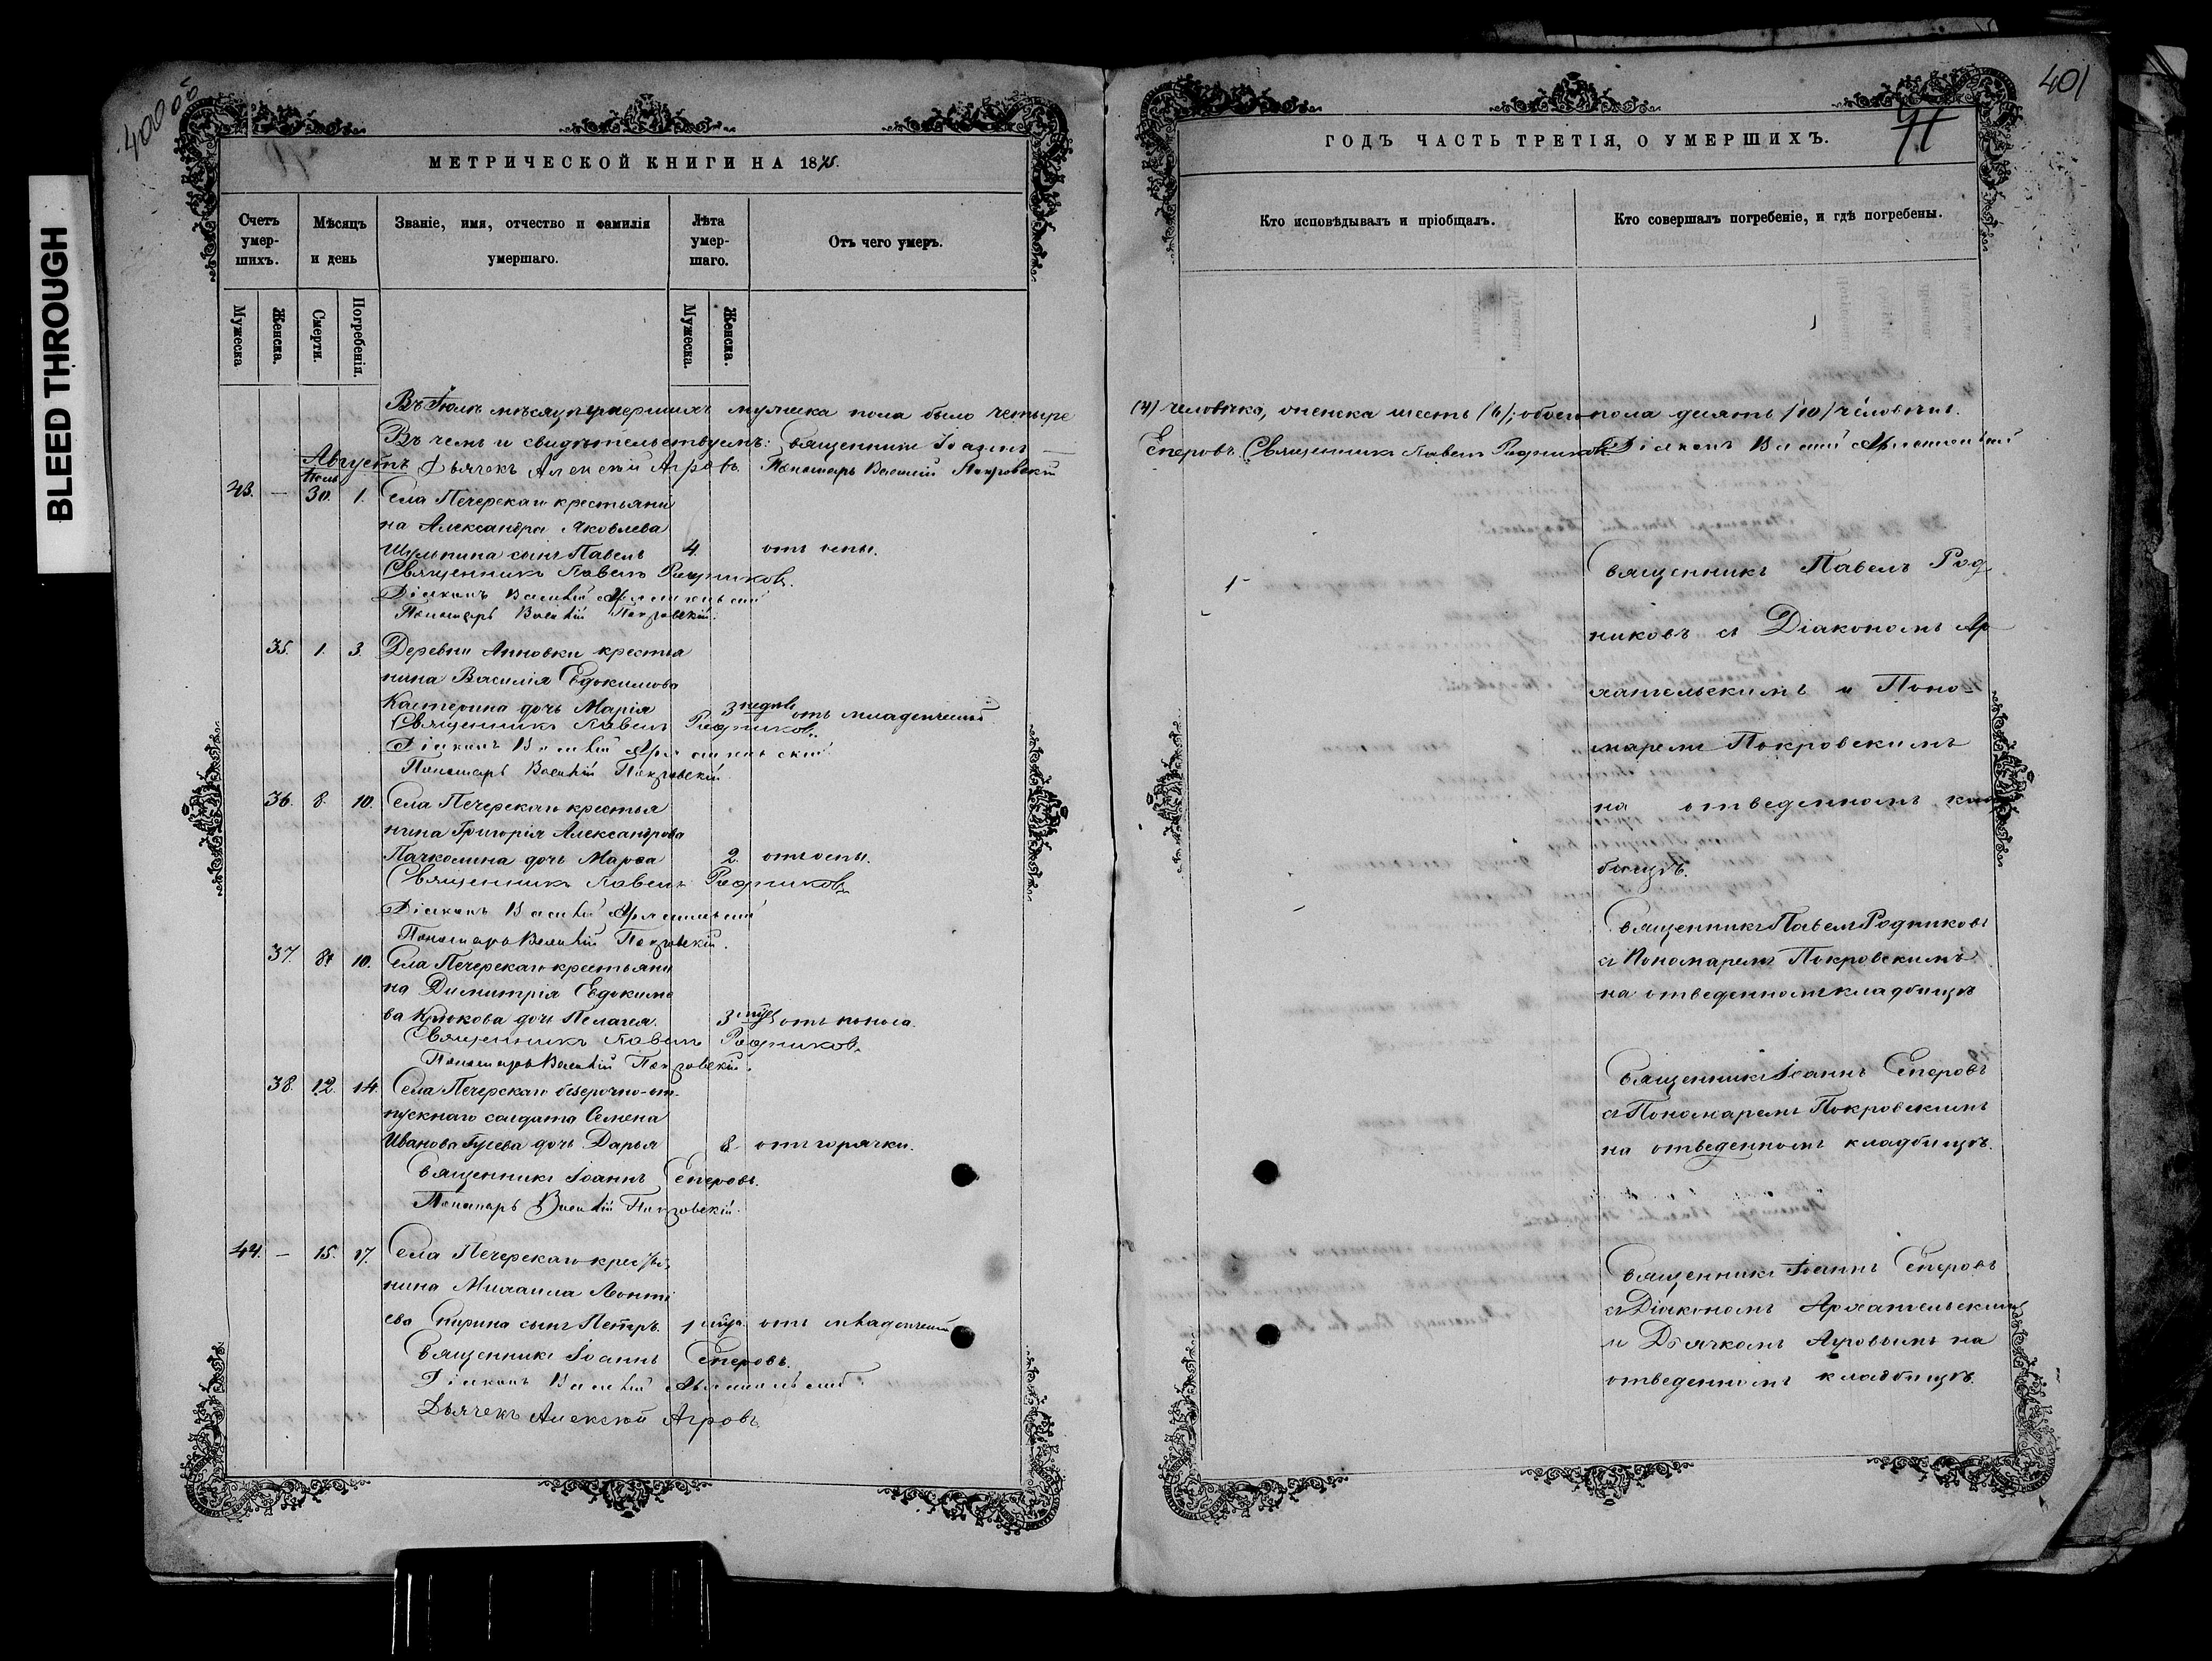 BLEED THROUGH
400об
МЕТРИЧЕСКОЙ КНИГИ НА 1875.
Счетъ умер- шихъ.
Мѣсяцъ и день
Званіе, имя, отчество и фамилія умершаго.
Лѣта умер- шаго.
Отъ чего умеръ.
Мужеска
Женска.
Смерти.
Погребенія.
Мужеска.
Женска.
Въ Іюлѣ мѣсяцѣ умершихъ мужеска пола было четыре
Въ чемъ и свидѣтельствуемъ: Священникъ Іоаннъ
Августъ Дьячекъ Алексѣй Агровъ. Пономарь Василій Покровскій
Іюль
43. — 30. 1. Села Печерскаго крестьяни
на Александра Яковлева
Шульпина сынъ Павелъ 4. отъ оспы.
Священникъ Павелъ Родниковъ.
Діаконъ Василій Архангельскій
Пономарь Василій Покровскій.
35. 1. 3. Деревни Анновки крестья
нина Василія Евдокимова
Кастерина дочь Марія 3 недѣль отъ младенческой
Священникъ Павелъ Родниковъ.
Діаконъ Василій Архангельскій
Пономарь Василій Покровскій
36. 8. 10. Села Печерскаго крестья
нина Григорія Александрова
Пачколина дочь Марѳа 2. отъ оспы.
Священникъ Павелъ Родниковъ
Діаконъ Василій Архангельскій
Пономарь Василій Покровскій.
37. 8. 10. Села Печерскаго крестьяни
на Димитрія Евдокимо
ва Крюкова дочь Пелагея. 3 отъ поноса.
Священникъ Павелъ Родниковъ
Пономарь Василій Покровскій.
38. 12. 14. Села Печерскаго безсрочно-от-
пускнаго солдата Семена
Иванова Гусева дочь Дарья 8. отъ горячки.
Священникъ Іоаннъ Еперовъ.
Пономарь Василій Покровскій.
44. — 15. 17. Села Печерскаго крестья
нина Михаила Леонті
ева Спирина сынъ Петръ. 1 отъ младенческой
Священникъ Іоаннъ Еперовъ.
Діаконъ Василій Архангельскій
Дьячекъ Алексѣй Агровъ.
401
ГОДЪ ЧАСТЬ ТРЕТІЯ, О УМЕРШИХЪ.
Кто исповѣдывалъ и пріобщалъ.
Кто совершалъ погребеніе, и гдѣ погребены.
(4) человѣка, женска шесть (6); обоего пола десять (10) человѣкъ.
Еперовъ. Священникъ Павелъ Родниковъ Діаконъ Василій Архангельскій
Священникъ Павелъ Род
никовъ съ Діакономъ Ар
хангельскимъ и Поно-
маремъ Покровскимъ
на отведенномъ клад
бищѣ.
Священникъ Павелъ Родниковъ
съ Пономаремъ Покровскимъ
на отведенномъ кладбищѣ
Священникъ Іоаннъ Еперовъ
съ Пономаремъ Покровскимъ
на отведенномъ кладбищѣ.
Священникъ Іоаннъ Еперовъ
съ Діакономъ Архангельскимъ
и Дьячкомъ Агровымъ на
отведенномъ кладбищѣ.